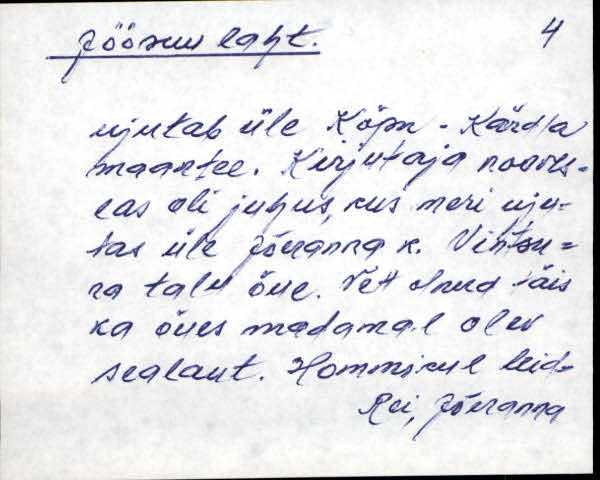 Jõõsuu laht. 4
ujutab üle Kõpu - Kärdla
maantee. Kirjutaja noorus-
eas oli juhus, kus meri uju-
tas üle Jõeranna k. Vintsu=
ra talu õue. Vett olnud täis
ka õues madamal olev
sealaut. Hommikul leid-
Rei, Jõeranna